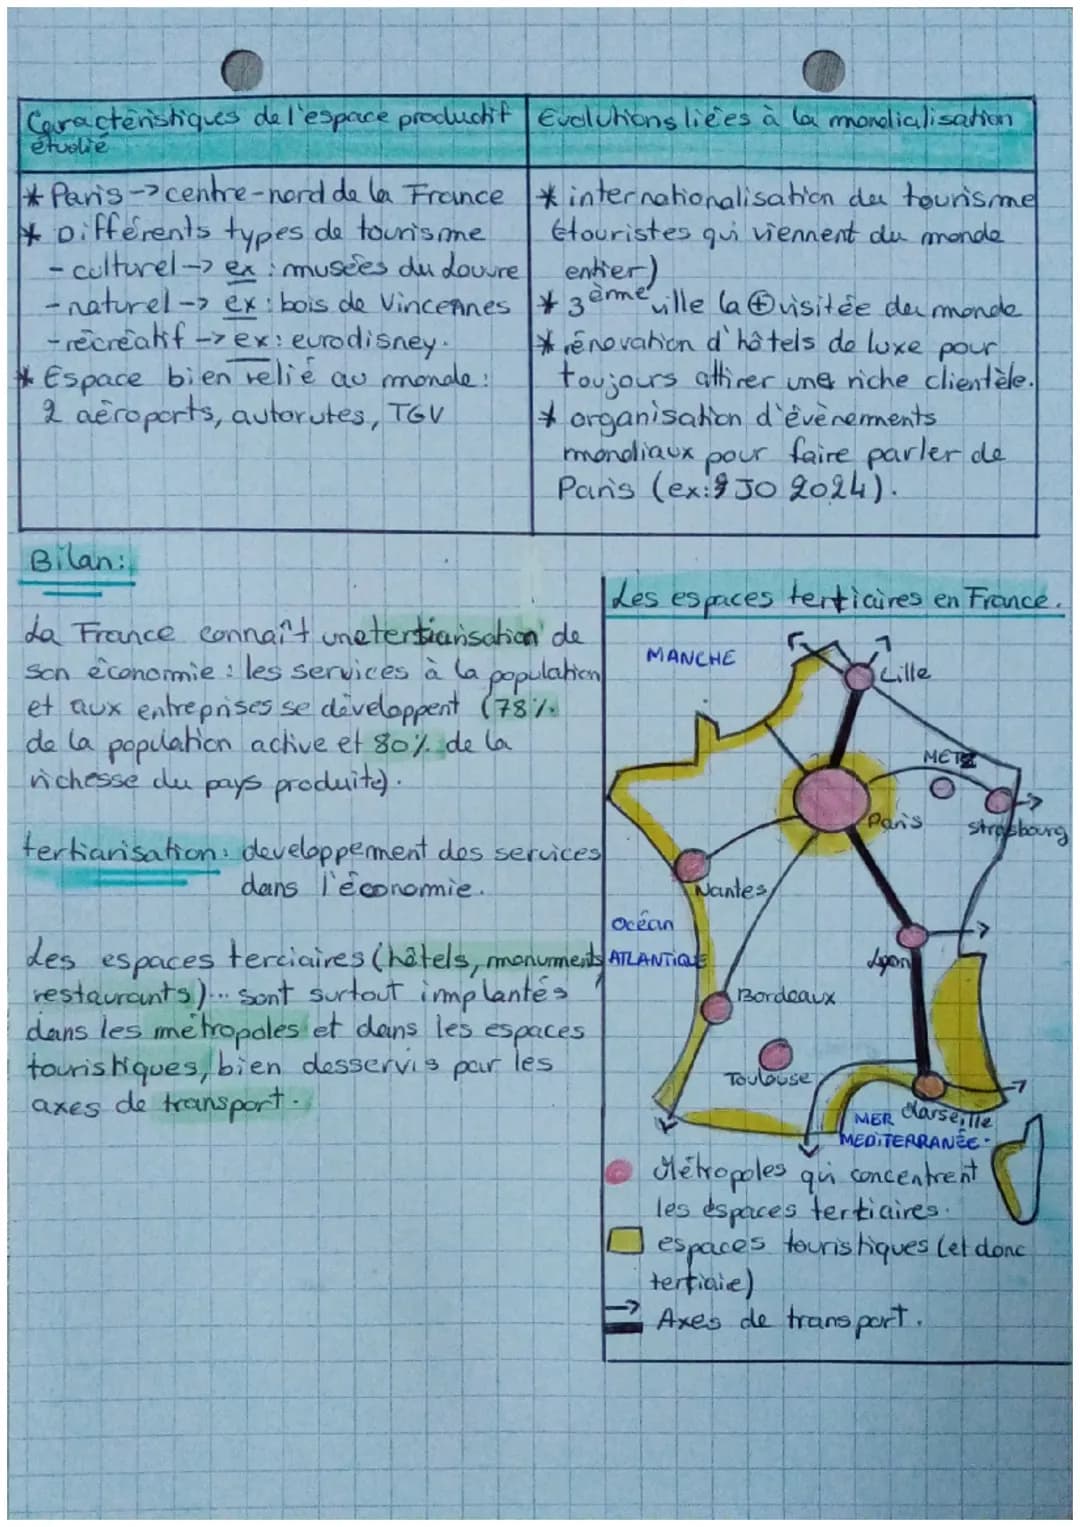 Caractéristiques de l'espace productif
étudié
* Paris -> centre-nord de la France
* Différents types de tourisme
- culturel -> ex : musées du Louvre
- naturel -> ex : bois de Vincennes
- récréatif -> ex : eurodisney.
* Espace bien relié au monde :
2 aéroports, autorutes, TGV
Evolutions liées à la mondialisation
* internationalisation du tourisme
(touristes qui viennent du monde
entier)
* 3ème ville la + visitée du monde
* rénovation d'hôtels de luxe pour
toujours attirer une riche clientèle.
* organisation d'évènements
mondiaux pour faire parler de
Paris (ex: JO 2024).
Bilan :
La France connaît une tertiarisation de
son économie : les services à la population
et aux entreprises se développent (78%
de la population active et 80% de la
richesse du pays produite).
tertiarisation : developpement des services
dans l'économie.
Les espaces terciaires (hôtels, monuments,
restaurants)... sont surtout implantés
dans les métropoles et dans les espaces
touristiques, bien desservis par les
axes de transport.
Les espaces tertiaires en France.
MANCHE
Lille
METZ
Paris
strasbourg
Nantes
Océan
ATLANTIQUE
Lyon
Bordeaux
Toulouse
Marseille
MER
MEDITERRANÉE.
Métropoles qui concentrent
les espaces tertiaires.
espaces touristiques (et donc
tertiaie)
Axes de transport.